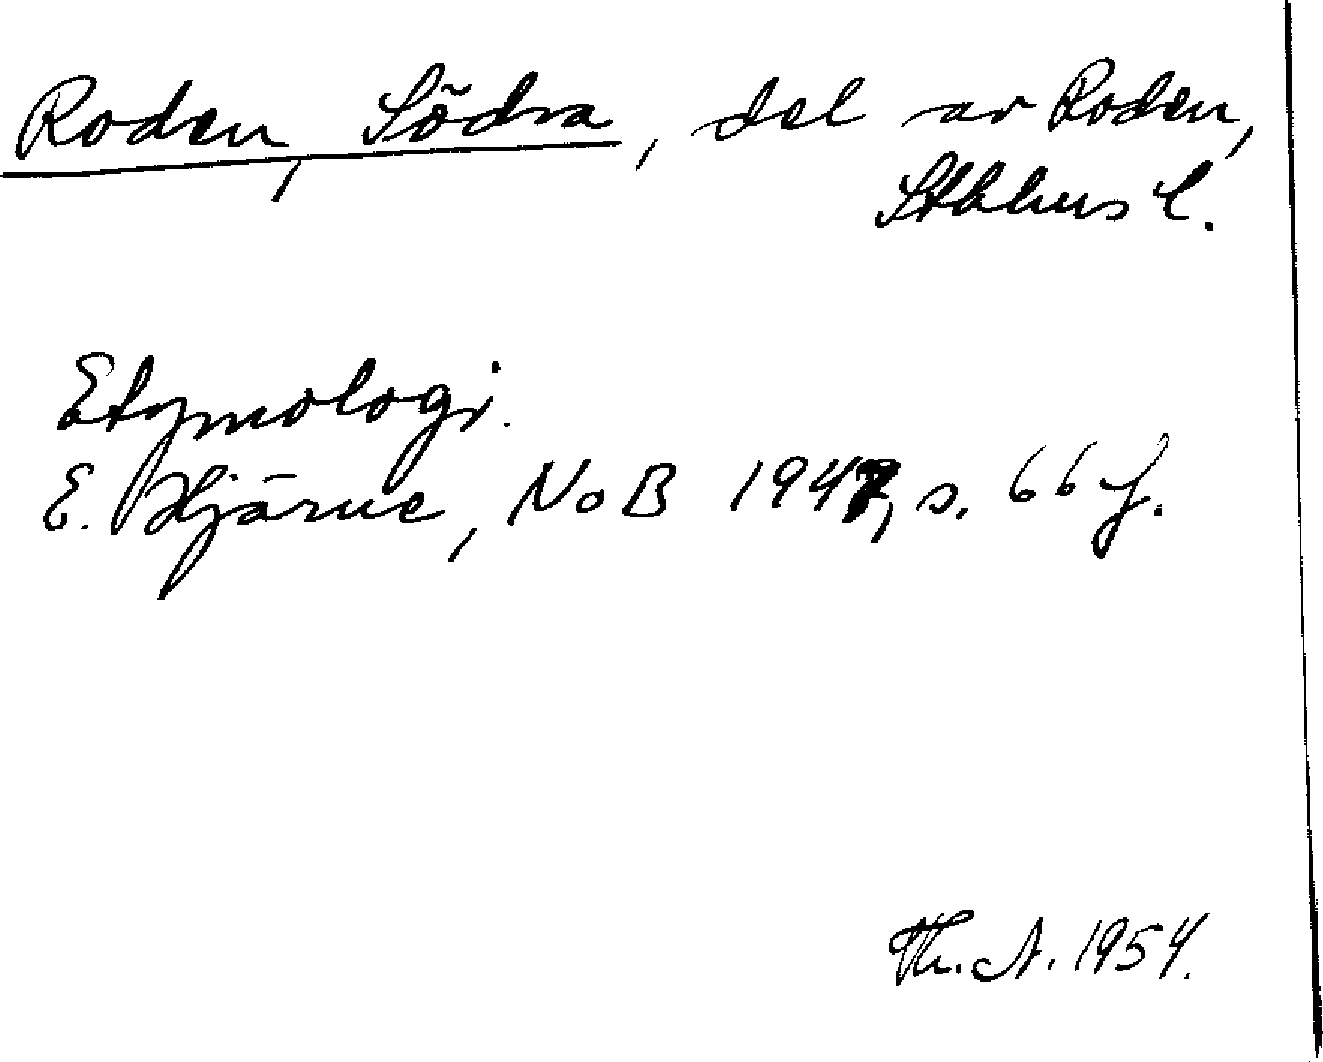 Roden, Södra, del av Roden,
Sthlms l.
Etymologi.
E. Hjärne, NoB 1947, s. 66 f.
Th. A. 1954.